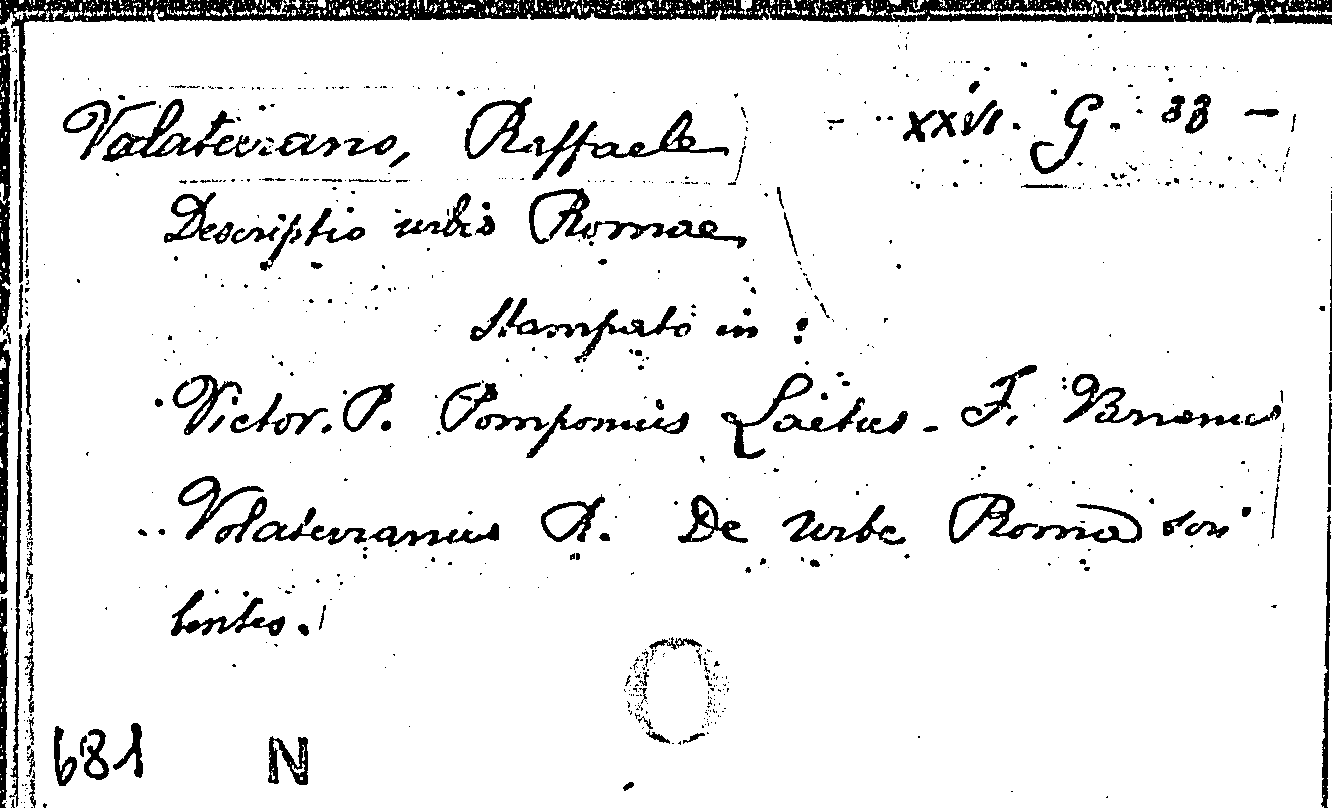 Volaterrano, Raffaele XXVI. G. 33 -
Descriptio urbis Romae
Stampato in :
Victor. P. Pomponius Laetus - F.
Volaterranus R. De urbe Roma scri
bentes.
681 N